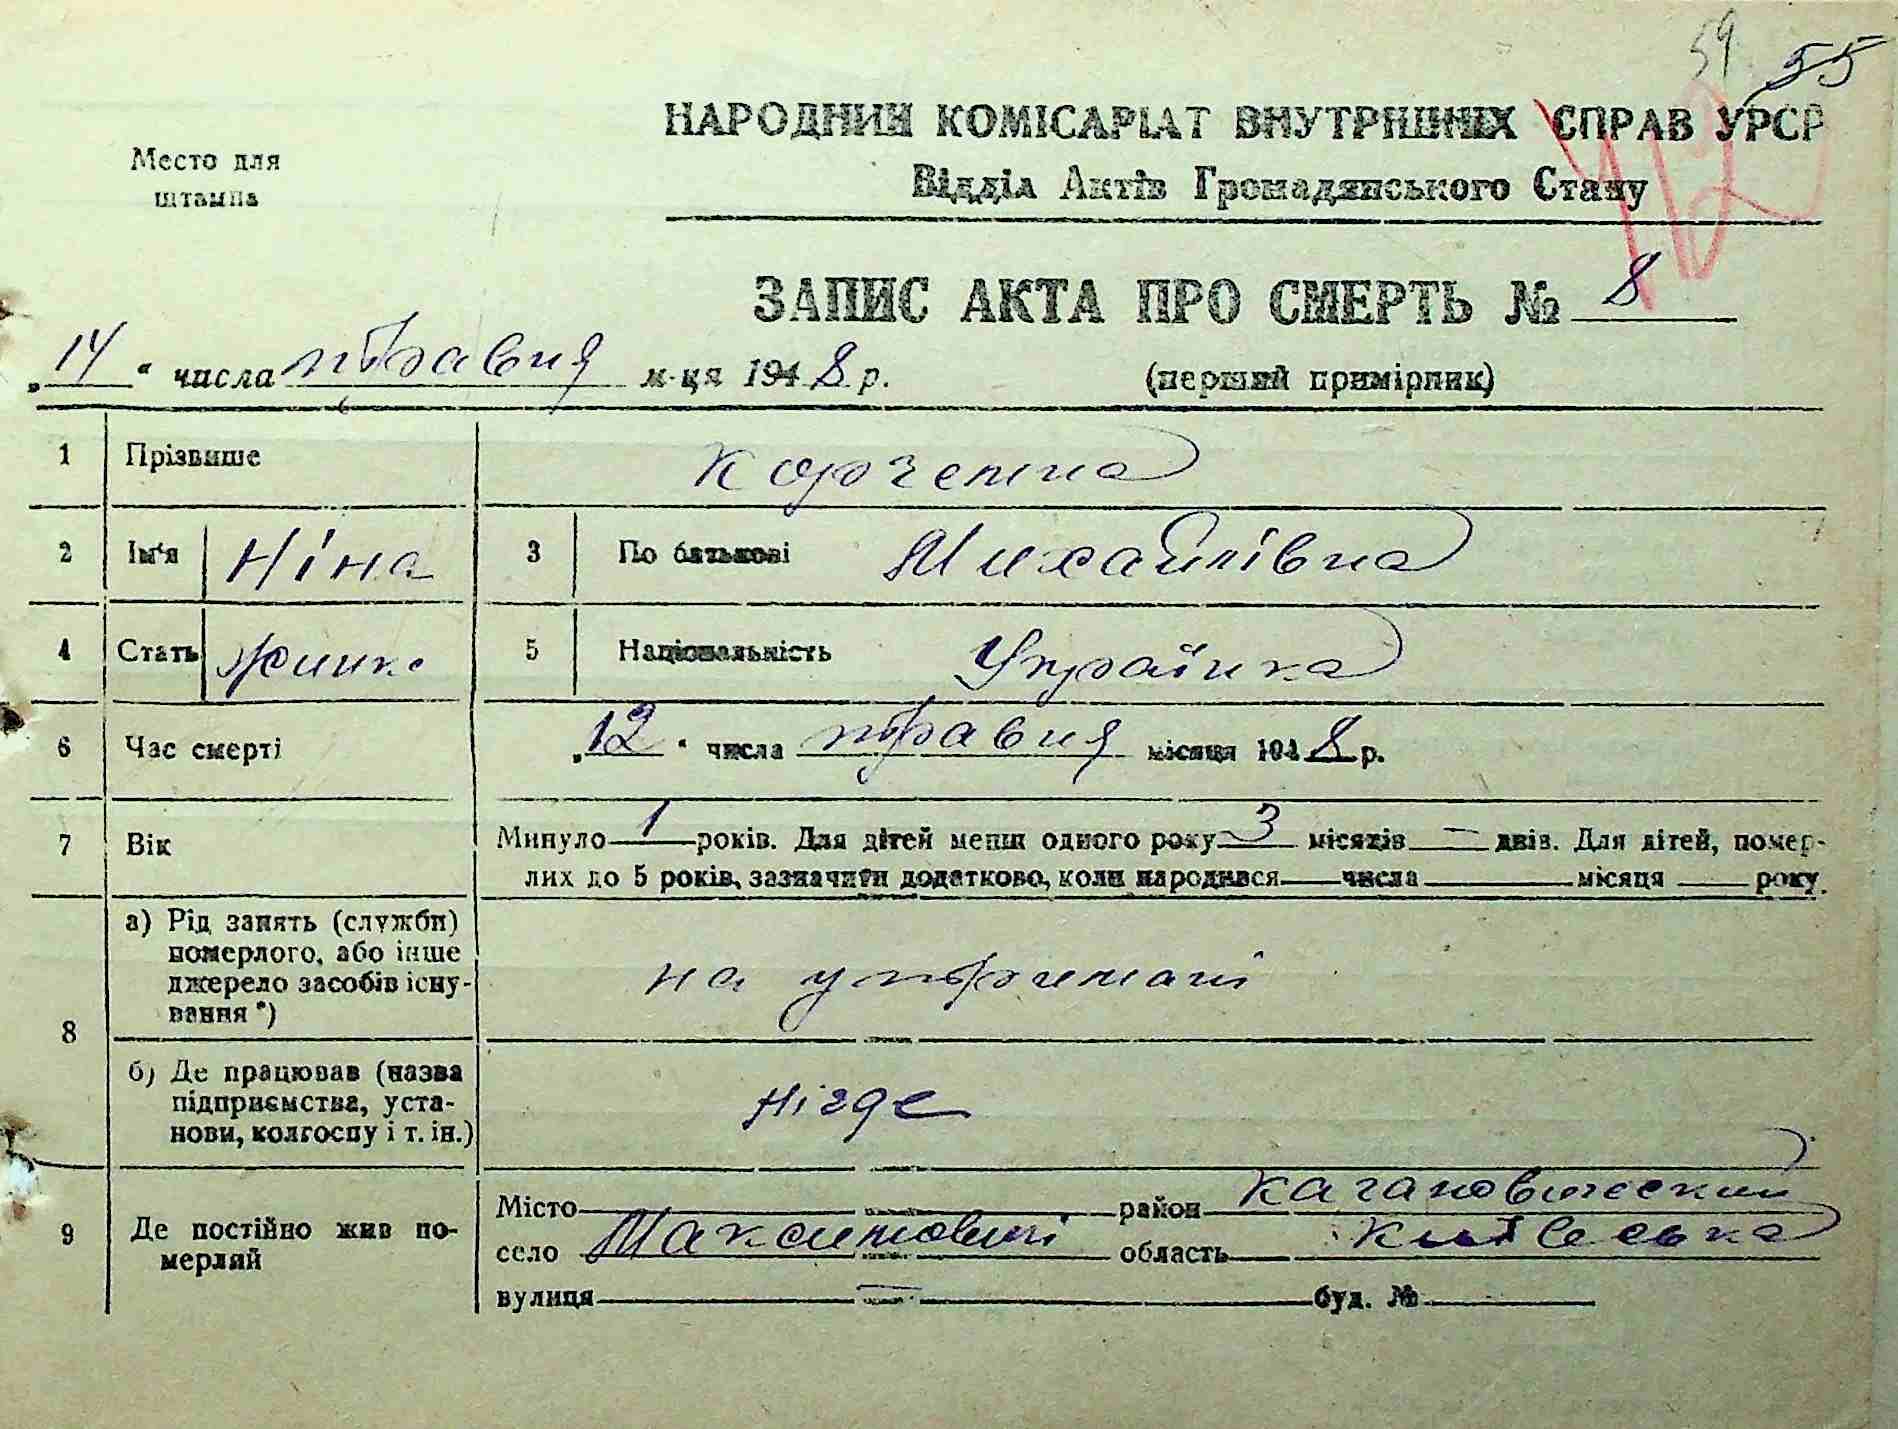 59 55
НАРОДНИЙ КОМІСАРІАТ ВНУТРІШНІХ СПРАВ УРСР
Место для
штампа
Відділ Актів Громадянського Стану
12
ЗАПИС АКТА ПРО СМЕРТЬ № 8
„14“ числа травня м-ця 1948 р.
(перший примірник)
1 Прізвище
2 Ім'я Ніна 3 По батькові Михайлівна
4 Стать 5 Національність Українка
6 Час смерті „12“ числа травня місяця 1948 р.
7 Вік Минуло 1 років. Для дітей менш одного року 3 місяців — днів. Для дітей, помер-
лих до 5 років, зазначити додатково, коли народився числа місяця року.
8 а) Рід занять (служби)
померлого, або інше
джерело засобів існу-
вання *)
на утриманні
б) Де працював (назва
підприємства, уста-
нови, колгоспу і т. ін.)
нігде
9 Де постійно жив по-
мерлий
Місто район Кагановический
село Максимовичі область Київська
вулиця — буд. №